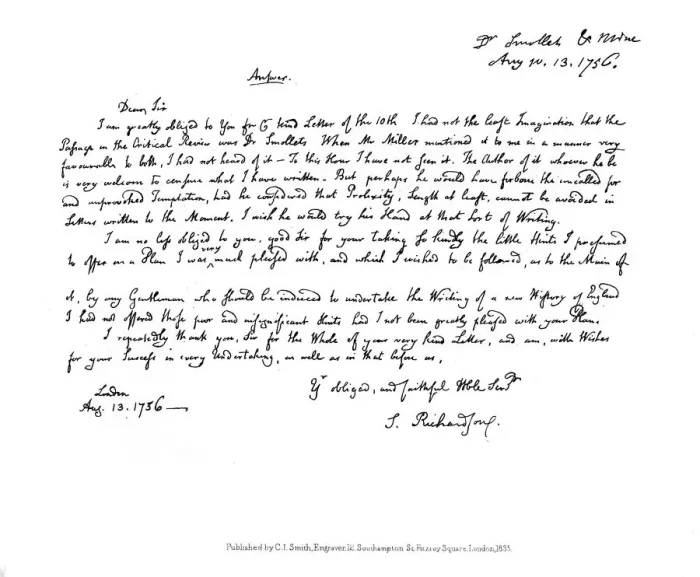 Dr Smollet & Mine
Aug st. 13. 1756.
Answer.
Dear Sir
I am greatly obliged to You for kind Letter of the 10th I had not the least Imagination that the
Passage in the Critical Review was Dr Smollets When Mr Millar mentioned it to me in a manner very
favourable to both, I had not heard of it — To this Hour I have not seen it. The Author of it whoever he be
is very welcome to censure what I have written - But perhaps he would have forborne the uncalled for
and unprovoked Temptation, had he considered that Prolixity, Length at least, cannot be avoided in
Letters written to the Moment. I wish he would try his Hand at that Sort of Writing.
I am no less obliged to you, good Sir for your taking so kindly the little Hints I presumed
to offer on a Plan I was very much pleased with, and which I wished to be followed, as to the Main of
it, by any Gentleman who should be induced to undertake the Writing of a new History of England
I had not offered those poor and insignificant Hints had I not been greatly pleased with your Plan.
I repeatedly thank you, Sir for the Whole of your very kind Letter, and am, with Wishes
for your Success in every Undertaking, as well as in that before us,
Yr obliged, and faithful Hble Servt
London
Aug. 13. 1756 —
S. Richardson.
Published by C.J. Smith, Engraver, Southampton St. Fitzroy Square. London, 1835.